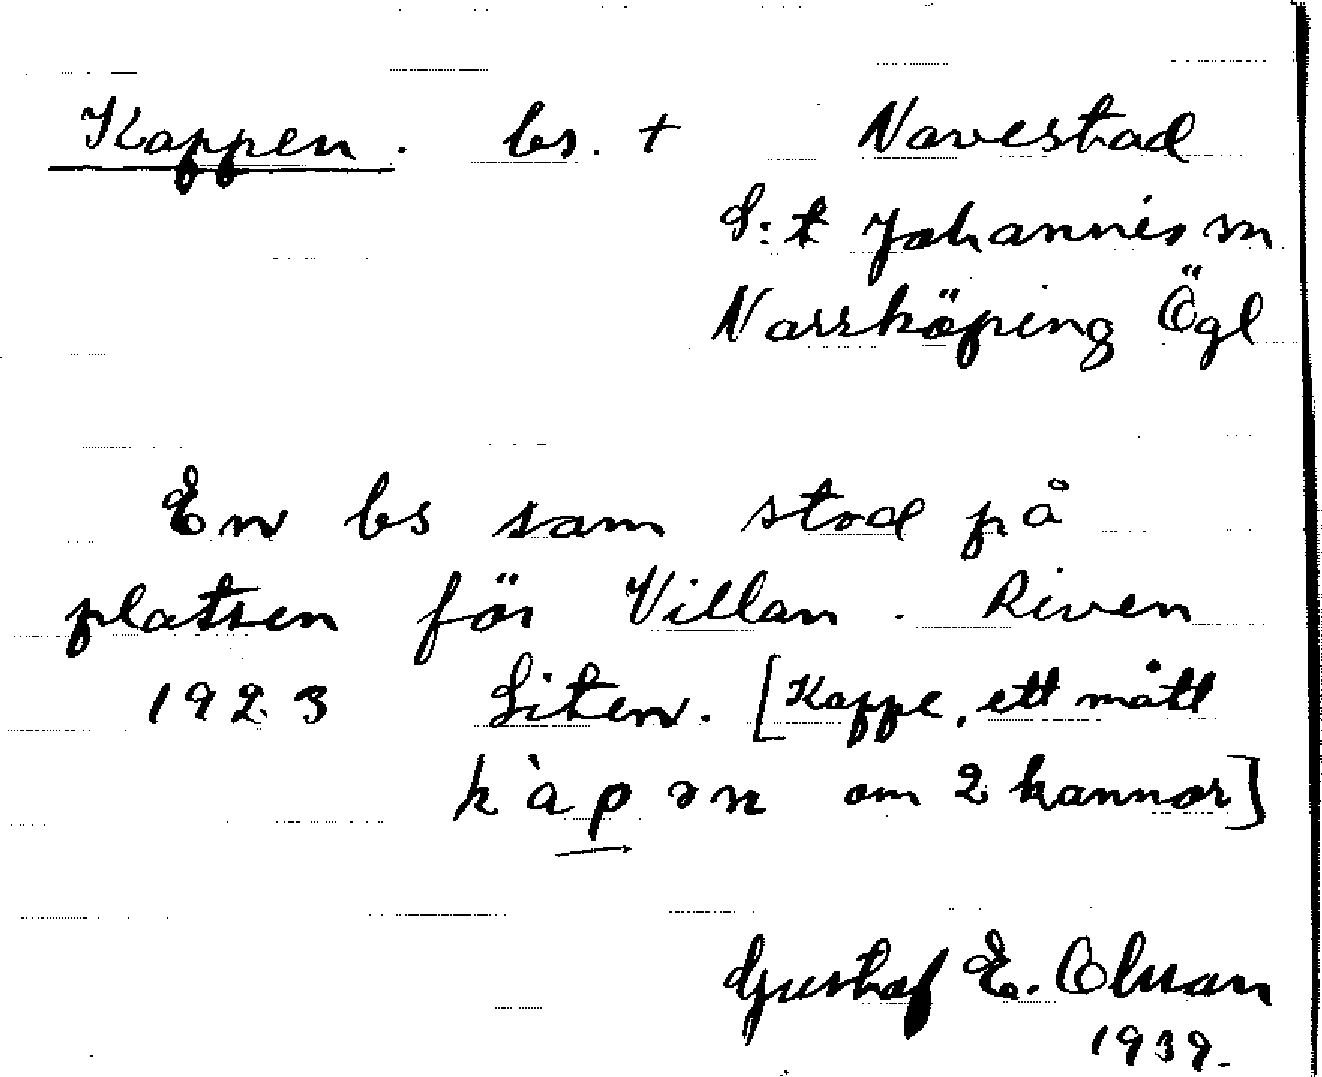 Kappen. bs. + Navestad
S:t Johannis sn
Norrköping Ögl
En bs som stod på
platsen för Villan. Riven
1923 Liten. [Kappe, ett mått
kàpən om 2 kannor]
Gustaf E. Olsson
1939.